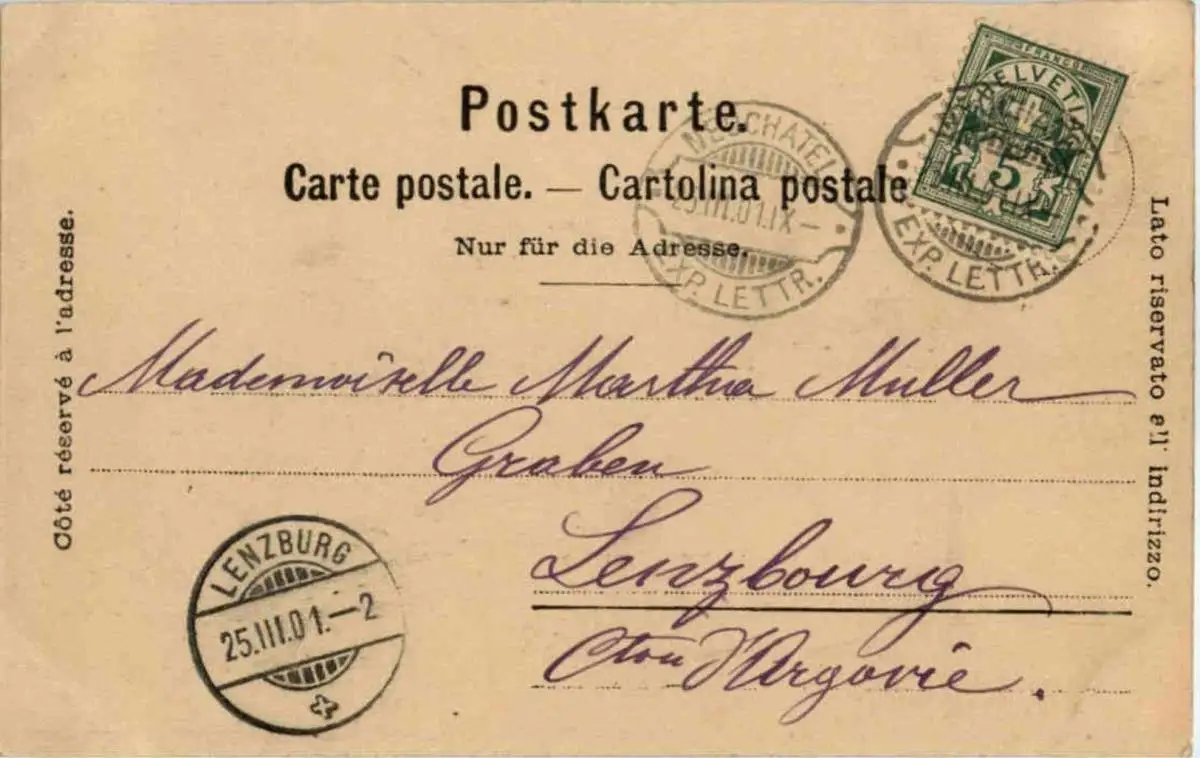 Postkarte.
Carte postale. — Cartolina postale
Nur für die Adresse.
Côté réservé à l'adresse.
Lato riservato all' indirizzo.
FRANCO
HELVETIA
5
NEUCHATEL
25.III.01.IX—
EXP. LETTR.
EXP. LETTR.
Mademoiselle Martha Muller
Graben
Lenzbourg
Cton d'Argovie.
LENZBURG
25.III.01.—2